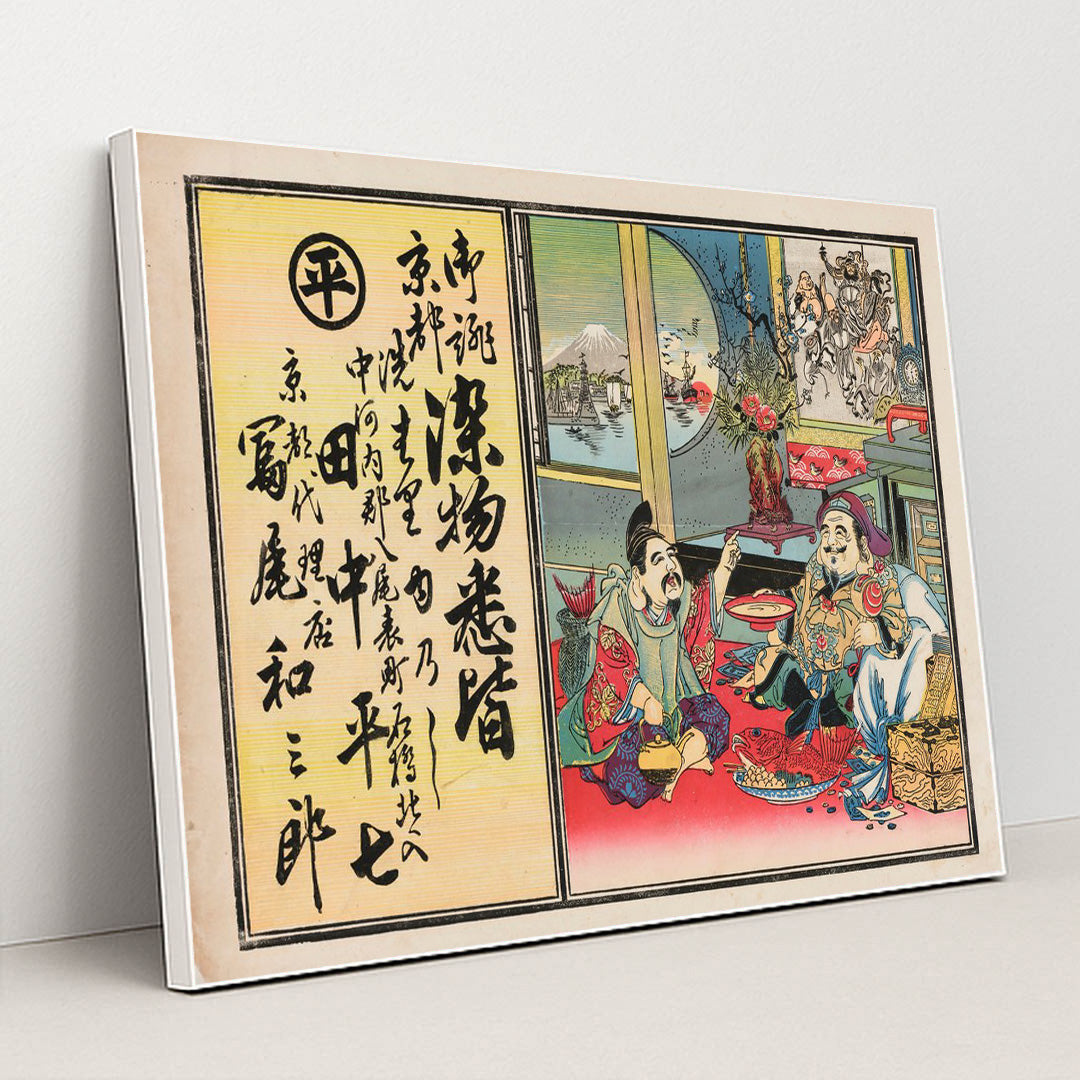 御誂 染物悉皆
京都 洗
中河内郡八尾表町石橋北入
田中平七
平
京都代理店
尾和三郎